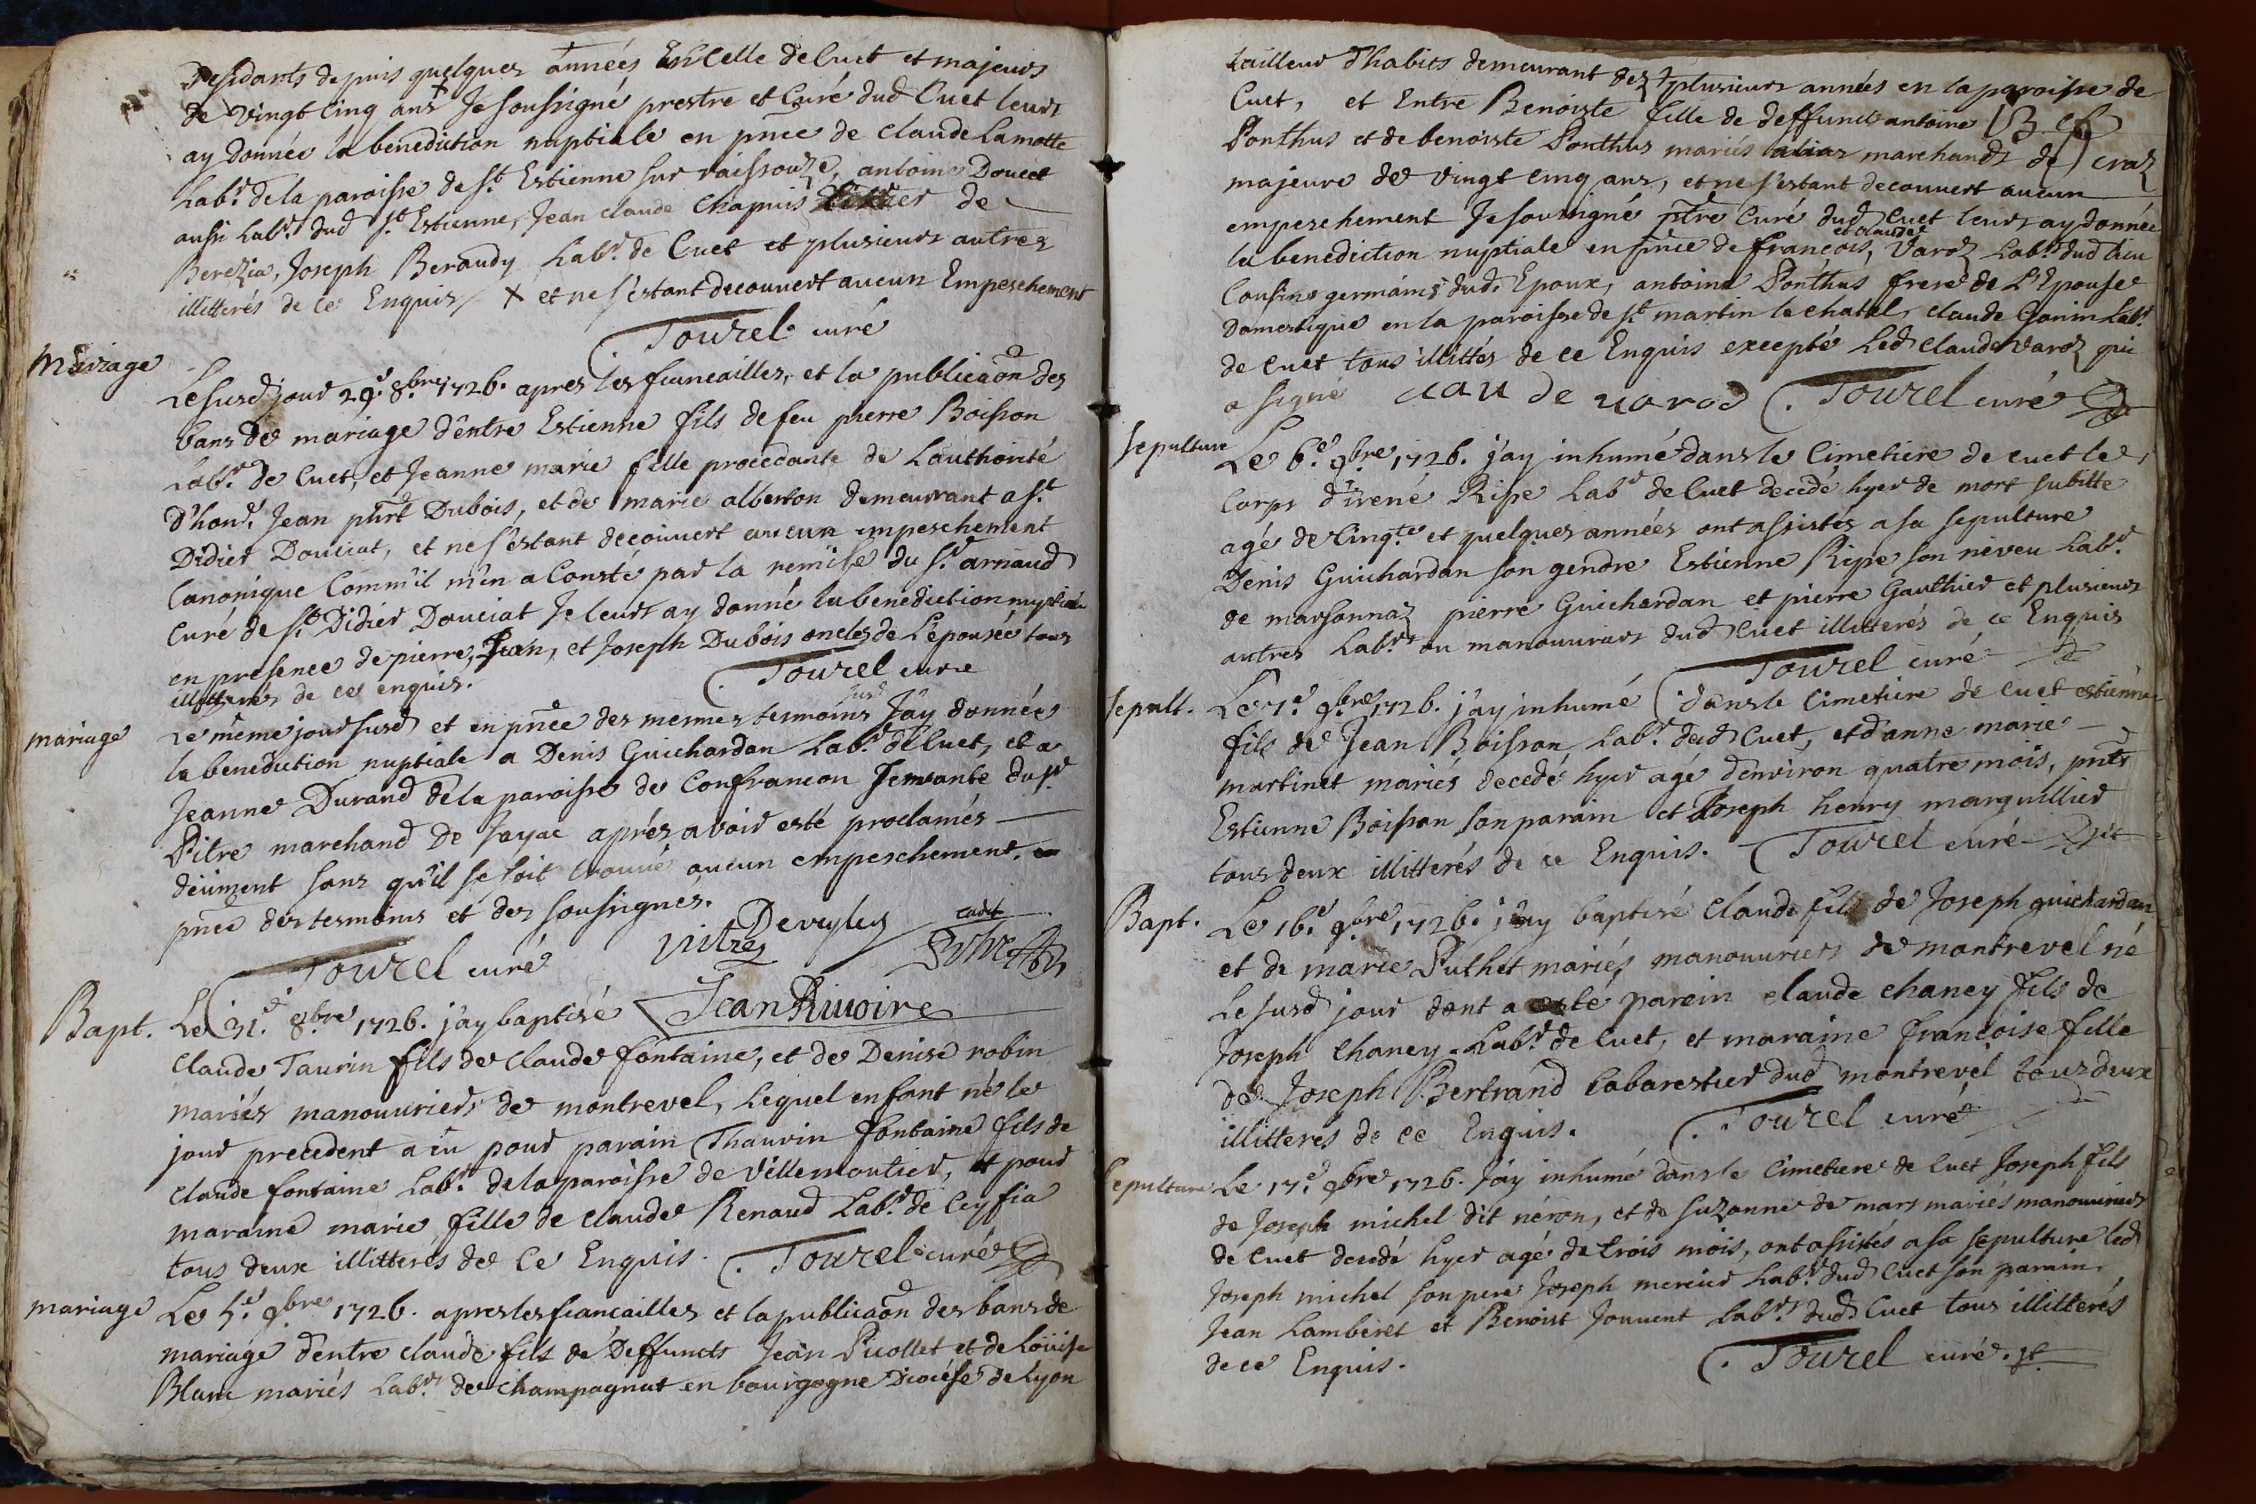 residants depuis quelques années En Celle de Cuet et majeurs
de vingt cinq ans + Je soussigné prestre et Curé dud Cuet leurs
ay donnée la benediction nuptiale en pnce de Claude Lamotte
Labr. de la paroisse de st. Estienne sur raissouze, antoine Doucet
aussi Labr. dud st. Estienne, Jean claude Chapuis de
Berezia, Joseph Beraudy Labr. de Cuet et plusieurs autres
illitterés de ce Enquis / X et ne s'estant decouvert aucun Empeschement
Tourel curé
Mariage
Le susd jour 29e. 8bre 1726. apres les fiancailles, et la publicaon des
bans de mariage d'entre Estienne fils de feu pierre Boisson
Labr. de Cuet, et Jeanne marie fille procedante de Lauthorité
d'honr. Jean pbrt Dubois, et de marie alberton demeurant a st.
Didier Douciat, et ne s'estant decouvert aucun empeschement
Canonique Comm'il m'en a Consté par la remise du sr. arnaud
Curé de st. Didier Douciat Je leurs ay donné la benediction nuptiale
en presence de pierre, Jean, et Joseph Dubois oncles de L'epousée tous
illitterés de ce enquis.
Tourel curé
mariage
Le même jour susd et en pnce des mesmes tesmoins susd J'ay donnée
la benediction nuptiale a Denis Guichardan Labr. de Cuet, et a
Jeanne Durand de la paroisse de Confrancon servante du sr.
Pitre marchand de Jayac aprés avoir esté proclamés
deüment sans qu'il se soit trouvé aucun empeschement. en
pnce des tesmoins et des soussignés.
Devyley
pitre
cadet
Tourel curé
Jean Rivoire
Bapt.
Le 31e. 8bre 1726. j'ay baptisé
Claude Taurin fils de Claude fontaine, et de Denise robin
mariés manouvriers de montrevel, Lequel enfant né le
jour precedent a eu pour parain Thaurin fontaine fils de
Claude fontaine Labr. de la paroisse de Villemoutier, et pour
maraine marie fille de claude Renaud Labr. de Ceyfia
tous deux illitterés de Ce Enquis. Tourel curé
mariage
Le 5e. 9bre 1726. apres les fiancailles et la publicaon des bans de
mariage d'entre claude fils de Deffuncts Jean Picollet et de Loüise
Blanc mariés Labrs. de champagnat en bourgogne Diocése de Lyon
tailleur d'habits demeurant dez plusieurs années en la paroisse de
Cuet, et Entre Benoiste fille de deffuncts antoine
Ponthus et de benoiste Ponthus mariés marchands de Craz
majeure de vingt cinq ans, et ne s'estant decouvert aucun
empeschement Je soussigné ptre Curé dud Cuet leurs ay donnée
la benediction nuptiale en pnce de francois, et claude Varod Labrs. dud lieu
Cousins germains dud. Epoux, antoine Ponthus frere de L'Epouse
Domestique en la paroisse de st martin le chatel, claude Gonin Labr.
de Cuet tous illittés de ce Enquis excepté Led claude Varoz qui
a signé cau de varod Tourel curé
sepulture
Le 6e. 9bre 1726. j'ay inhumé dans le Cimetiere de cuet le
Corps d'irené Ripe Labr de Cuet decedé hyer de mort subitte
agé de Cinqte et quelques années ont assistés a sa sepulture
Denis Guichardan son gendre Estienne Ripe son neveu Labr.
de marsonnaz pierre Guichardan et pierre Gauthier et plusieurs
autres Labrs ou manouvriers dud Cuet illitterés de ce Enquis
Tourel curé
sepult.
Le 7e. 9bre 1726. j'ay inhumé dans le Cimetiere de Cuet estienne
fils de Jean Boisson Labr. dud Cuet, et d'anne marie
martinet mariés decedé hyer agé d'environ quatre mois, pnts
Estienne Boisson son parain et Joseph henry marguillier
tous deux illitterés de ce Enquis. Tourel curé
Bapt.
Le 16e. 9bre 1726. j'ay baptisé Claude fils de Joseph guichardan
et de marie Puthet mariés manouvriers de montrevel né
Le susd jour dont a esté parain claude chaney fils de
Joseph chaney Labr. de Cuet, et maraine francoise fille
de Joseph Bertrand Cabarestier dud montrevel tous deux
illitteres de ce Enquis. Tourel curé
sepulture
Le 17e. 9bre 1726. J'ay inhumé dans le Cimetiere de Cuet Joseph fils
de Joseph michel dit néron, et de Suzanne de mars mariés manouvriers
de Cuet decedé hyer agé de trois mois, ont assistés a sa sepulture led
Joseph michel son pere Joseph mercier Labr. dud Cuet son parain,
Jean Lamberet et Benoist Jouvent Labrs. dud Cuet tous illitterés
de ce Enquis. Tourel curé.